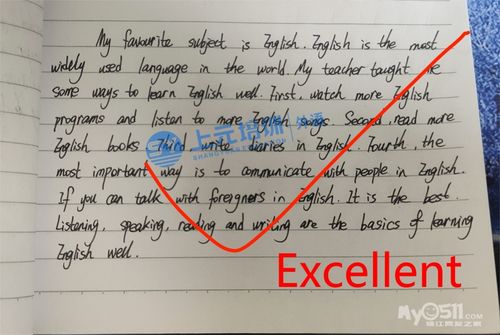 My favourite subject is English. English is the most
widely used language in the world. My teacher taught me
some ways to learn English well. First, watch more English
programs and listen to more English songs. Second, read more
English books. Third, write diaries in English. Fourth, the
most important way is to communicate with people in English.
If you can talk with foreigners in English. It is the best.
Listening, speaking, reading and writing are the basics of learning
English well.
上元培训 外语
Excellent
My0511.com